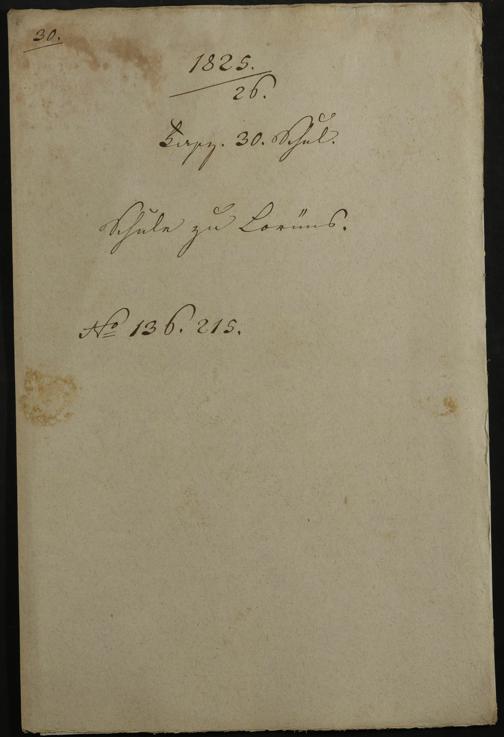 30.
1825.
26.
Fasz. 30. Schul.
Schule zu Lorüns.
No 136. 215.